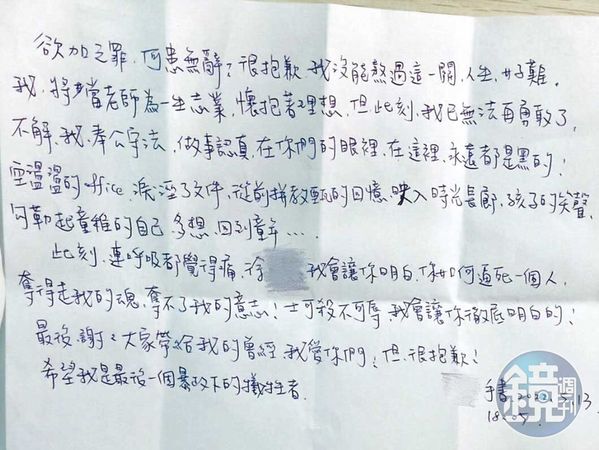 欲加之罪，何患無辭？很抱歉 我沒能熬過這一關，人生，好難。
我，將步當老師為一生志業，懷抱著理想，但此刻，我已無法再勇敢了，
不解，我，奉公守法，做事認真，在你們的眼裡，在這裡，永遠都是黑的！
空盪盪的office，淚溼了文件，從前拼教甄的回憶，映入時光長廊，孩子的笑聲，
勾勒起童稚的自己 多想，回到童年……
此刻，連呼吸都覺得痛，徐 我會讓你明白，你如何逼死一個人，
奪得走我的魂，奪不了我的意志！士可殺不可辱，我會讓你徹底明白的！
最後，謝謝大家帶給我的曾經，我愛你們！但，很抱歉！
希望我是最後一個暴政下的犧牲者。
手書 13
18
鏡週刊